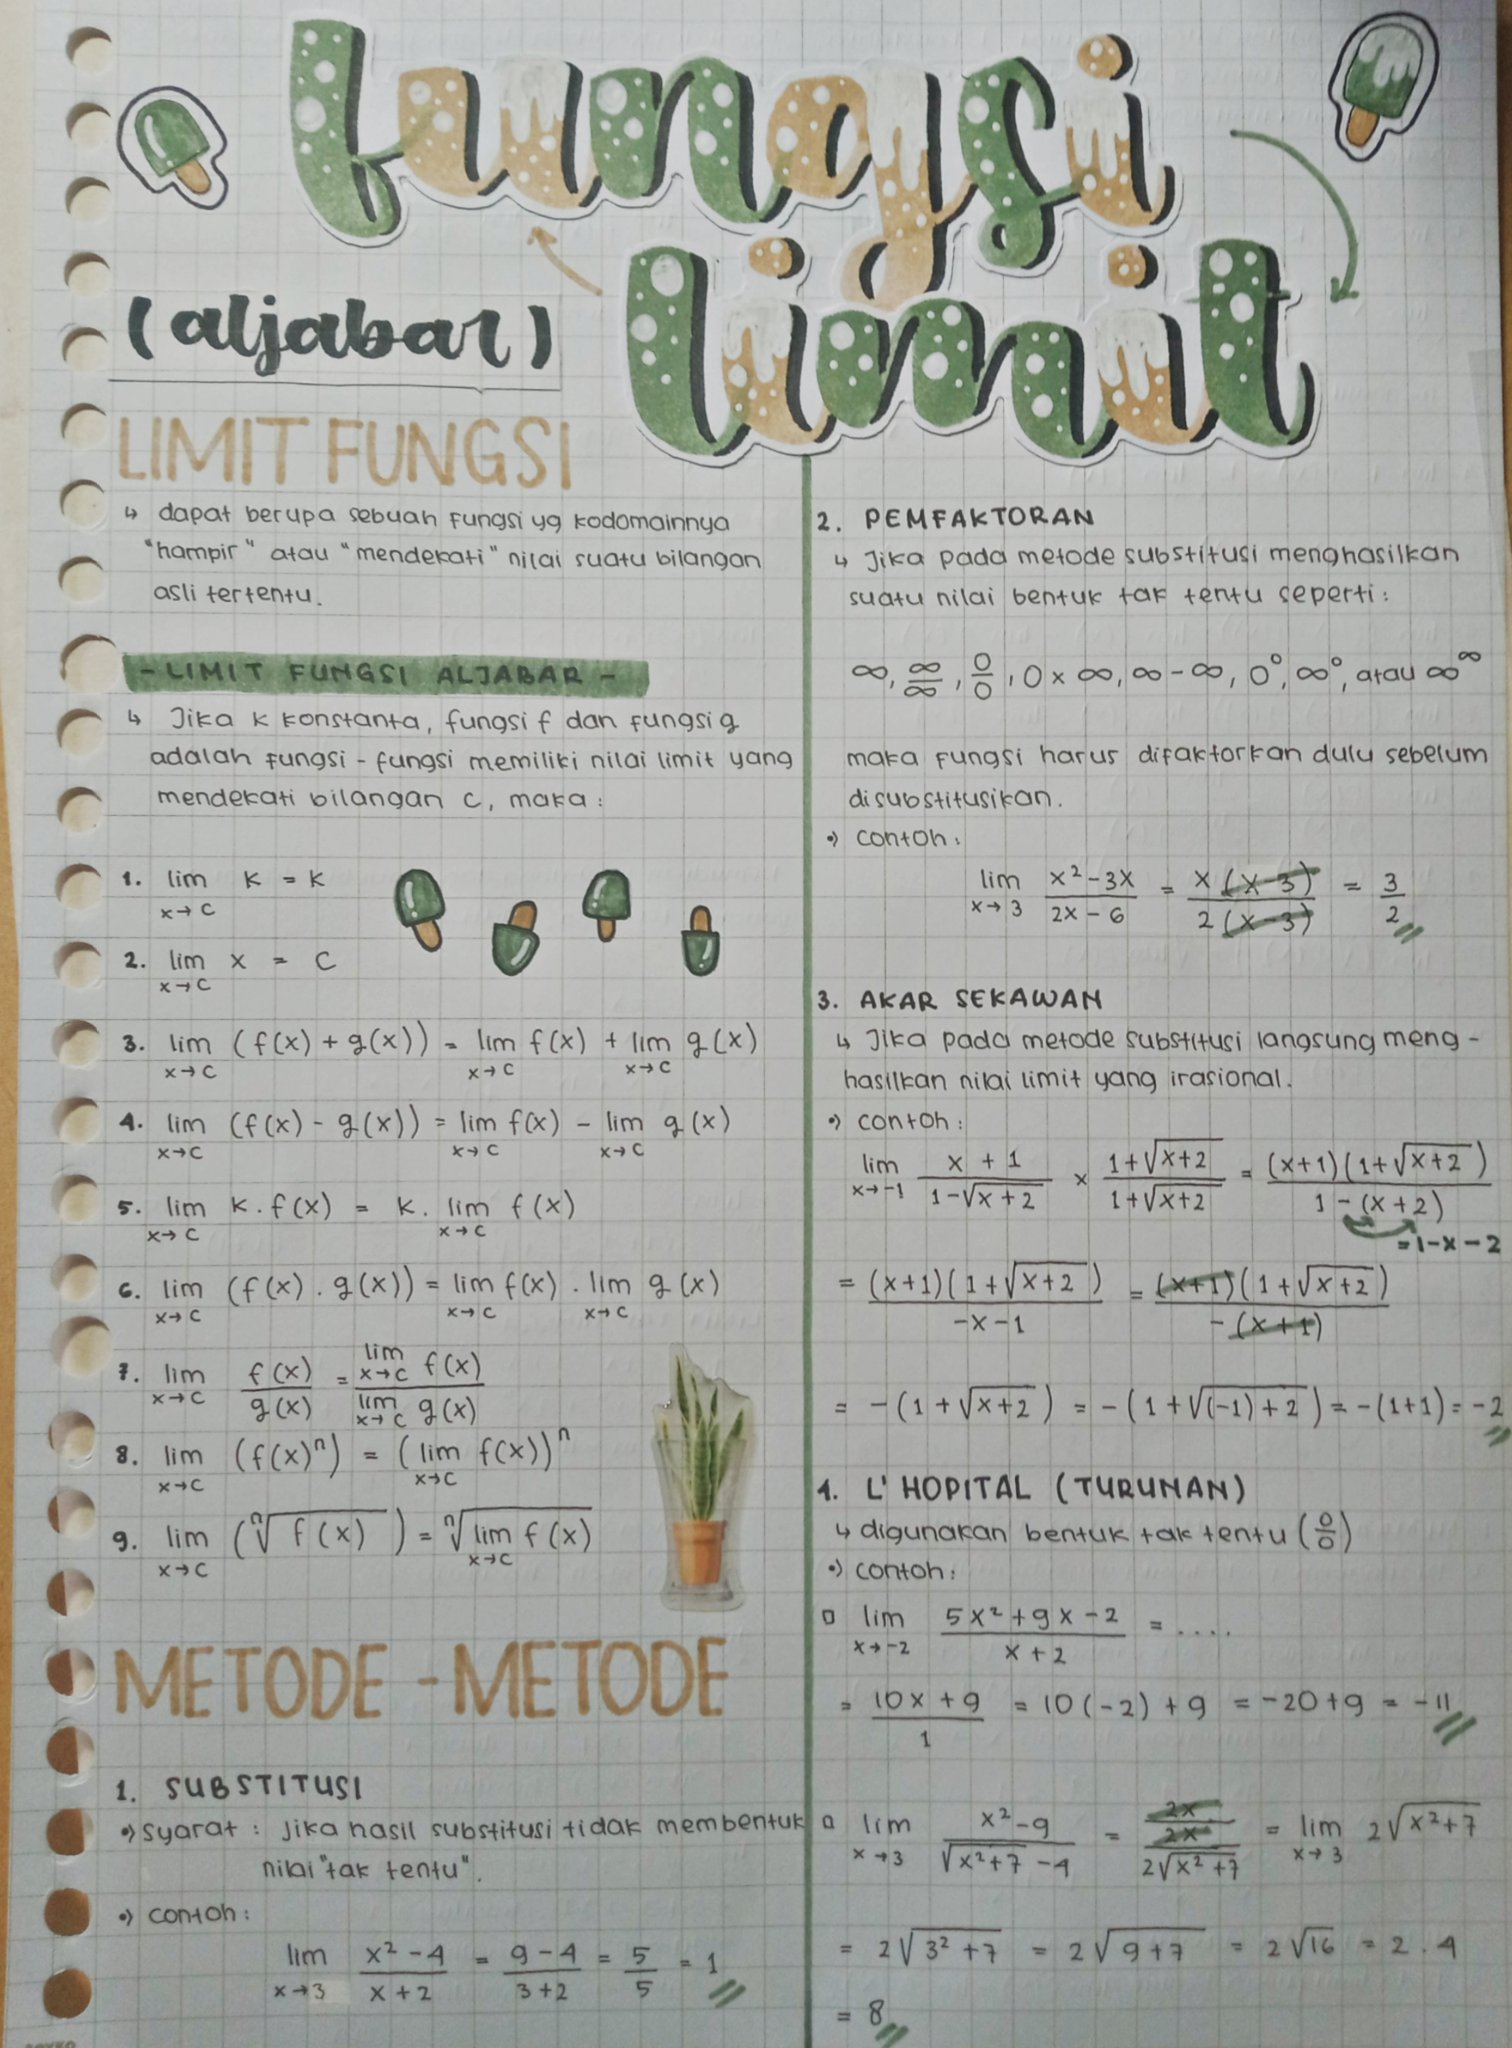 fungsi
limit
(aljabar)
LIMIT FUNGSI
↳ dapat berupa sebuah fungsi yg kodomainnya
"hampir" atau "mendekati" nilai suatu bilangan
asli tertentu.
- LIMIT FUNGSI ALJABAR -
↳ Jika k konstanta, fungsi f dan fungsi g
adalah fungsi - fungsi memiliki nilai limit yang
mendekati bilangan c, maka :
1. lim x→c k = k
2. lim x→c x = c
3. lim x→c (f(x) + g(x)) = lim x→c f(x) + lim x→c g(x)
4. lim x→c (f(x) - g(x)) = lim x→c f(x) - lim x→c g(x)
5. lim x→c k . f(x) = k . lim x→c f(x)
6. lim x→c (f(x) . g(x)) = lim x→c f(x) . lim x→c g(x)
7. lim x→c f(x)/g(x) = lim x→c f(x) / lim x→c g(x)
8. lim x→c (f(x)ⁿ) = (lim x→c f(x))ⁿ
9. lim x→c (ⁿ√f(x)) = ⁿ√lim x→c f(x)
METODE - METODE
1. SUBSTITUSI
•) syarat : Jika hasil substitusi tidak membentuk
nilai "tak tentu".
•) contoh :
lim x→3 (x² - 4)/(x + 2) = (9 - 4)/(3 + 2) = 5/5 = 1
2. PEMFAKTORAN
↳ Jika pada metode substitusi menghasilkan
suatu nilai bentuk tak tentu seperti :
∞, ∞/∞, 0/0, 0 x ∞, ∞ - ∞, 0⁰, ∞⁰, atau ∞^∞
maka fungsi harus difaktorkan dulu sebelum
disubstitusikan.
•) contoh :
lim x→3 (x² - 3x)/(2x - 6) = x (x-3)/2 (x-3) = 3/2
3. AKAR SEKAWAN
↳ Jika pada metode substitusi langsung meng -
hasilkan nilai limit yang irasional.
•) contoh :
lim x→-1 (x + 1)/(1-√(x+2)) × (1+√(x+2))/(1+√(x+2)) = (x+1)(1+√(x+2))/(1 - (x+2))
= 1 - x - 2
= (x+1)(1+√(x+2))/(-x-1) = (x+1)(1+√(x+2))/-(x+1)
= -(1+√(x+2)) = -(1+√((-1)+2)) = -(1+1) = -2
4. L'HOPITAL (TURUNAN)
↳ digunakan bentuk tak tentu (0/0)
•) contoh :
▫ lim x→-2 (5x² + 9x - 2)/(x + 2) = ....
= (10x + 9)/1 = 10(-2) + 9 = -20 + 9 = -11
▫ lim x→3 (x² - 9)/(√(x²+7) - 4) = 2x/(2x/(2√(x²+7))) = lim x→3 2√(x²+7)
= 2√(3² + 7) = 2√(9+7) = 2√16 = 2 . 4
= 8